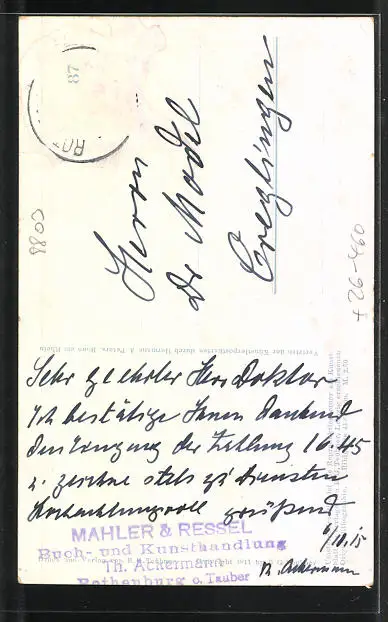 87
RO
8800
Herrn
Dr Model
Creglingen
+26-460
Vertrieb der Künstlerpostkarten durch Hermann A. Peters, Bonn am Rhein
Sehr geehrter Herr Doktor
Ich bestätige Ihnen dankend
den Eingang der Zahlung 16.45
u. zeichne stets zu Diensten
Hochachtungsvoll grüßend
6/10.15
Th. Ackermann
MAHLER & RESSEL
Buch- und Kunsthandlung
Th. Ackermann
Rothenburg o. Tauber